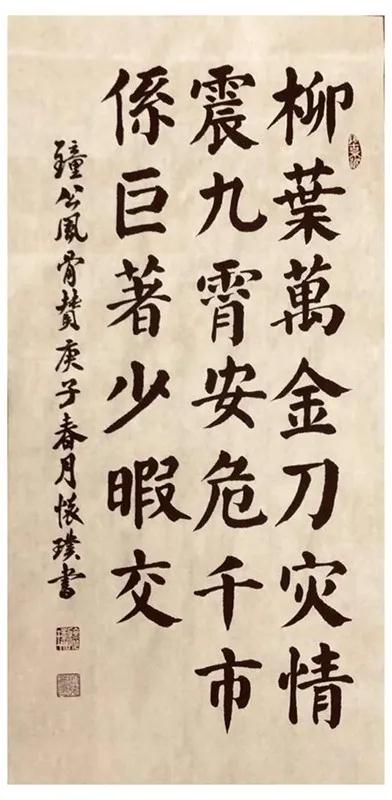 柳葉萬金刀灾情
震九霄安危千市
係巨著少暇交
鐘公風骨贊庚子春月懷璞書